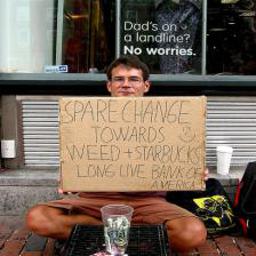 Dad's on
a landline?
No worries.
SPARE CHANGE
TOWARDS
WEED + STARBUCKS
LONG LIVE BANK OF
AMERICA